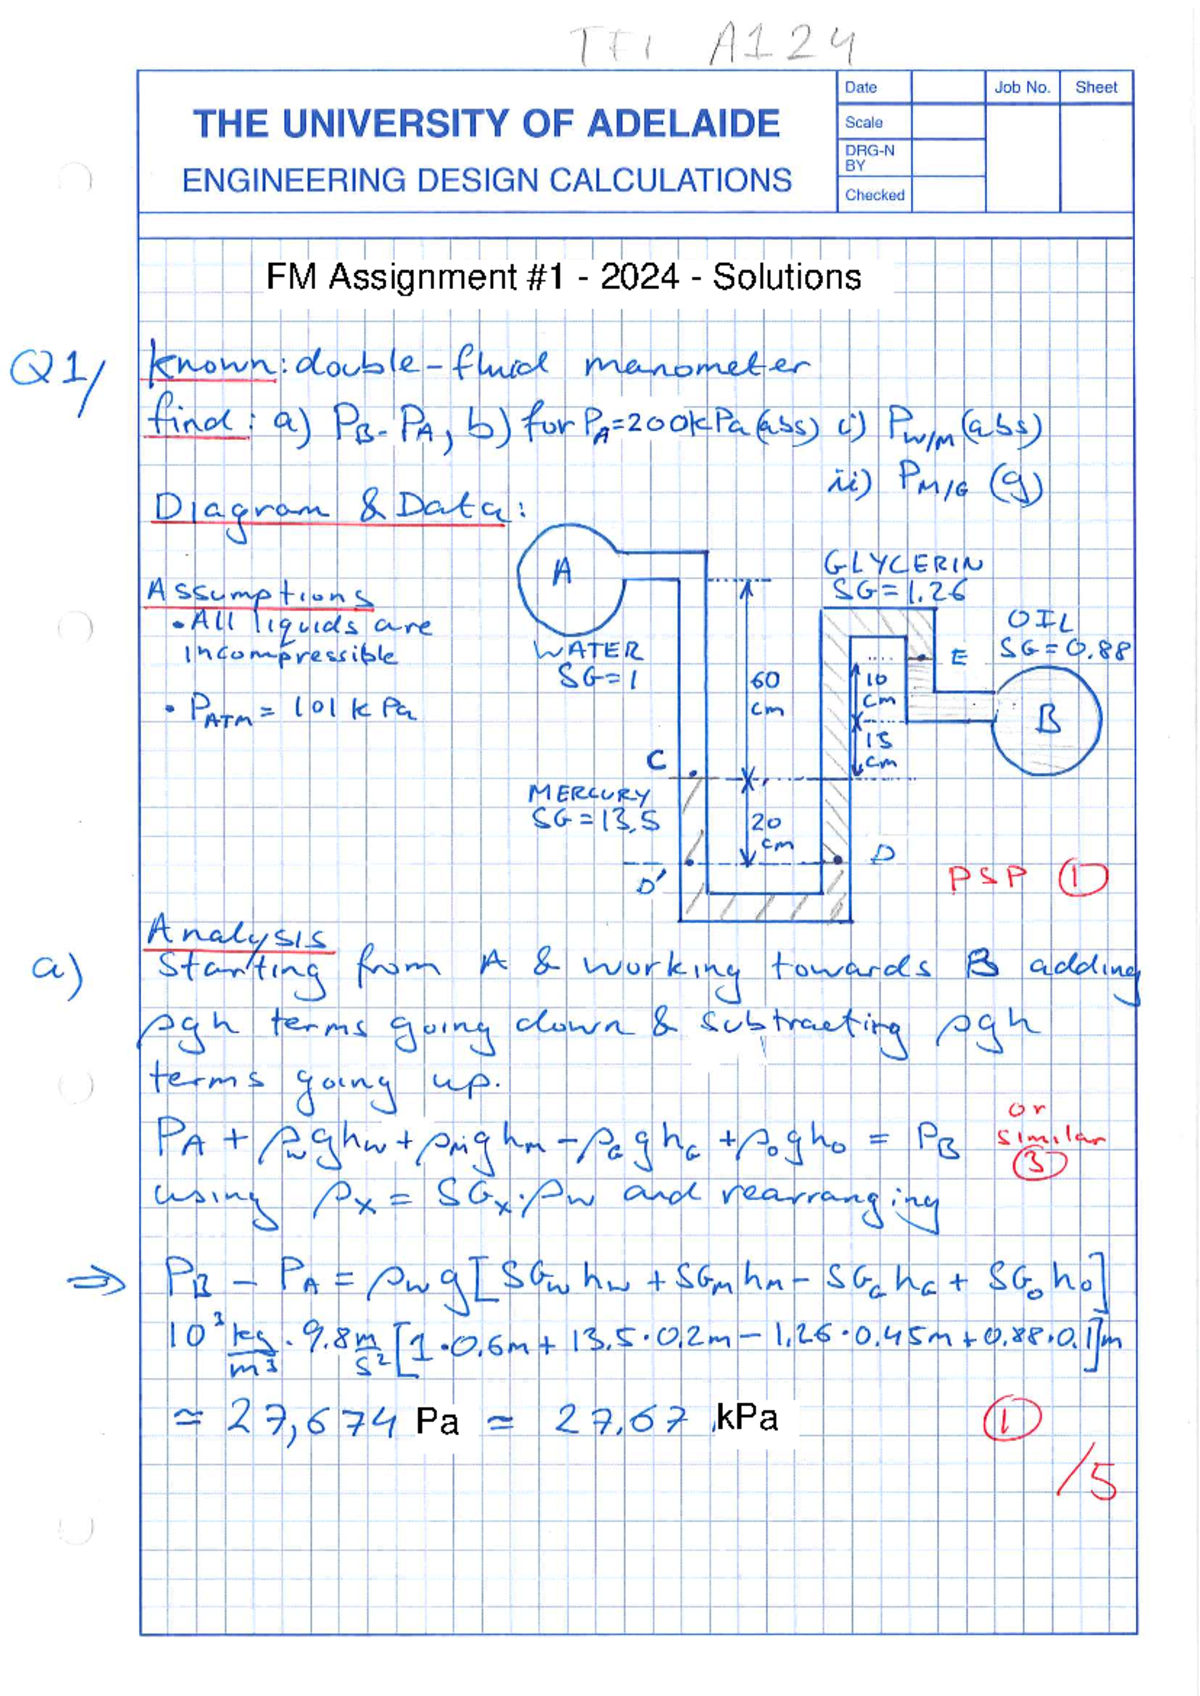 TFI A124
THE UNIVERSITY OF ADELAIDE
ENGINEERING DESIGN CALCULATIONS
Date
Scale
DRG-N
BY
Checked
Job No.
Sheet
FM Assignment #1 - 2024 - Solutions
Q1/ Known: double-fluid manometer
find: a) PB-PA, b) for PA=200kPa(abs) i) PW/M (abs)
ii) PM/G (g)
Diagram & Data:
A
GLYCERIN
SG=1.26
Assumptions
• All liquids are
incompressible
• PATM = 101 kPa
WATER
SG=1
OIL
SG=0.88
E
60
cm
10
cm
B
15
cm
C
MERCURY
SG=13,5
20
cm
D'
D
PSP 1
Analysis
a) Starting from A & working towards B adding
ρgh terms going down & subtracting ρgh
terms going up.
PA + ρwghw + ρMghm - ρGghG + ρoghO = PB
or
similar
3
using ρx = SGx·ρw and rearranging
⇒ PB - PA = ρwg[SGwhw + SGmhm - SGGhG + SGoho]
10³ kg/m³ · 9.8 m/s² [1·0.6m + 13.5·0.2m - 1.26·0.45m + 0.88·0.1]m
≃ 27,674 Pa ≃ 27.67 kPa
1
/5